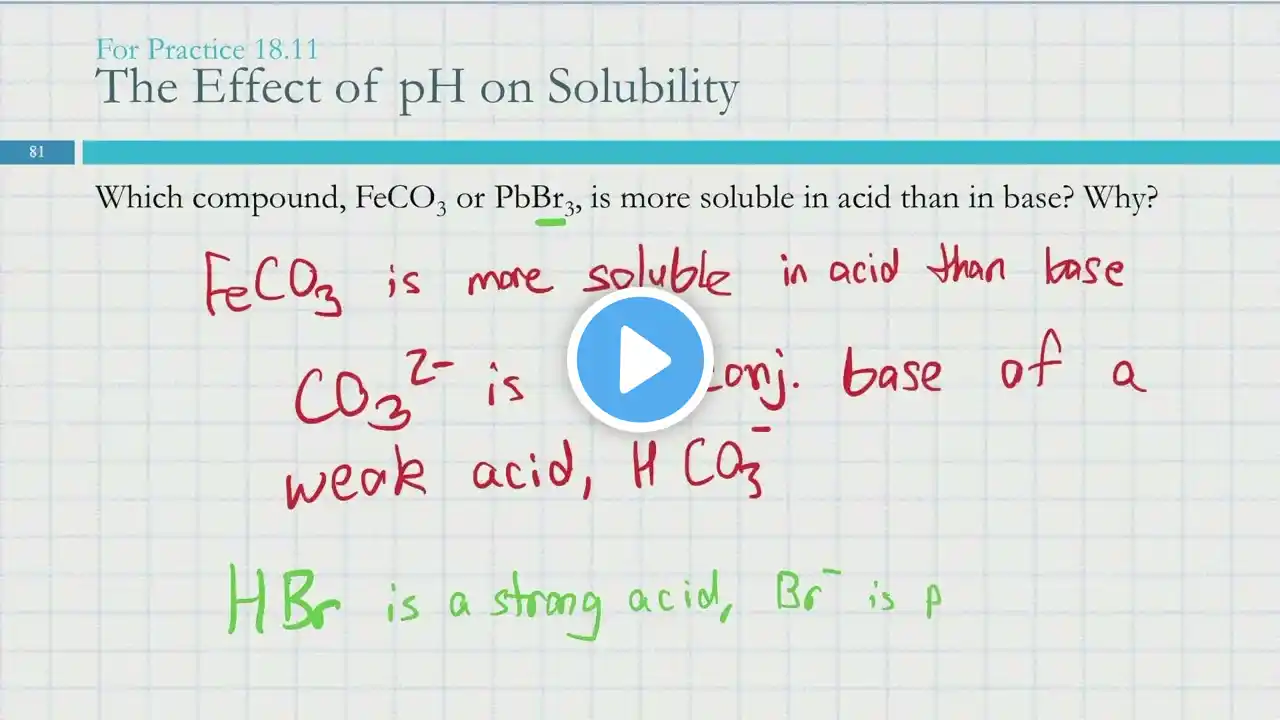 For Practice 18.11
The Effect of pH on Solubility
81
Which compound, FeCO₃ or PbBr₃, is more soluble in acid than in base? Why?
FeCO₃ is more soluble in acid than base
CO₃²⁻ is conj. base of a
weak acid, HCO₃⁻
HBr is a strong acid, Br⁻ is p